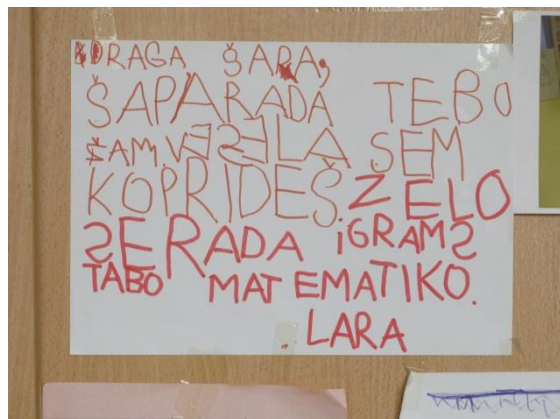 DRAGA ŠARA,
ŠAPARADA TEBO
ŠAM.VESELA SEM
KOPRIDEŠ. ZELO
SERADA iGRAMS
TABO MATEMATIKO.
LARA